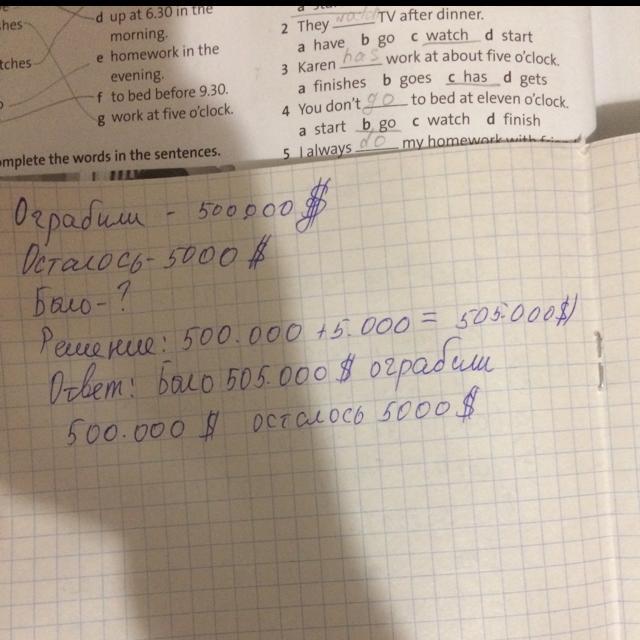 d up at 6.30 in the
morning.
e homework in the
evening.
f to bed before 9.30.
g work at five o'clock.
omplete the words in the sentences.
2 They watch TV after dinner.
a have b go c watch d start
3 Karen has work at about five o'clock.
a finishes b goes c has d gets
4 You don't go to bed at eleven o'clock.
a start b go c watch d finish
5 I always do my homework with
Ограбили - 500000 $
Осталось - 5000 $
Было - ?
Решение: 500.000 + 5.000 = 505.000$)
Ответ: Было 505.000 $ ограбили
500.000 $ осталось 5000 $